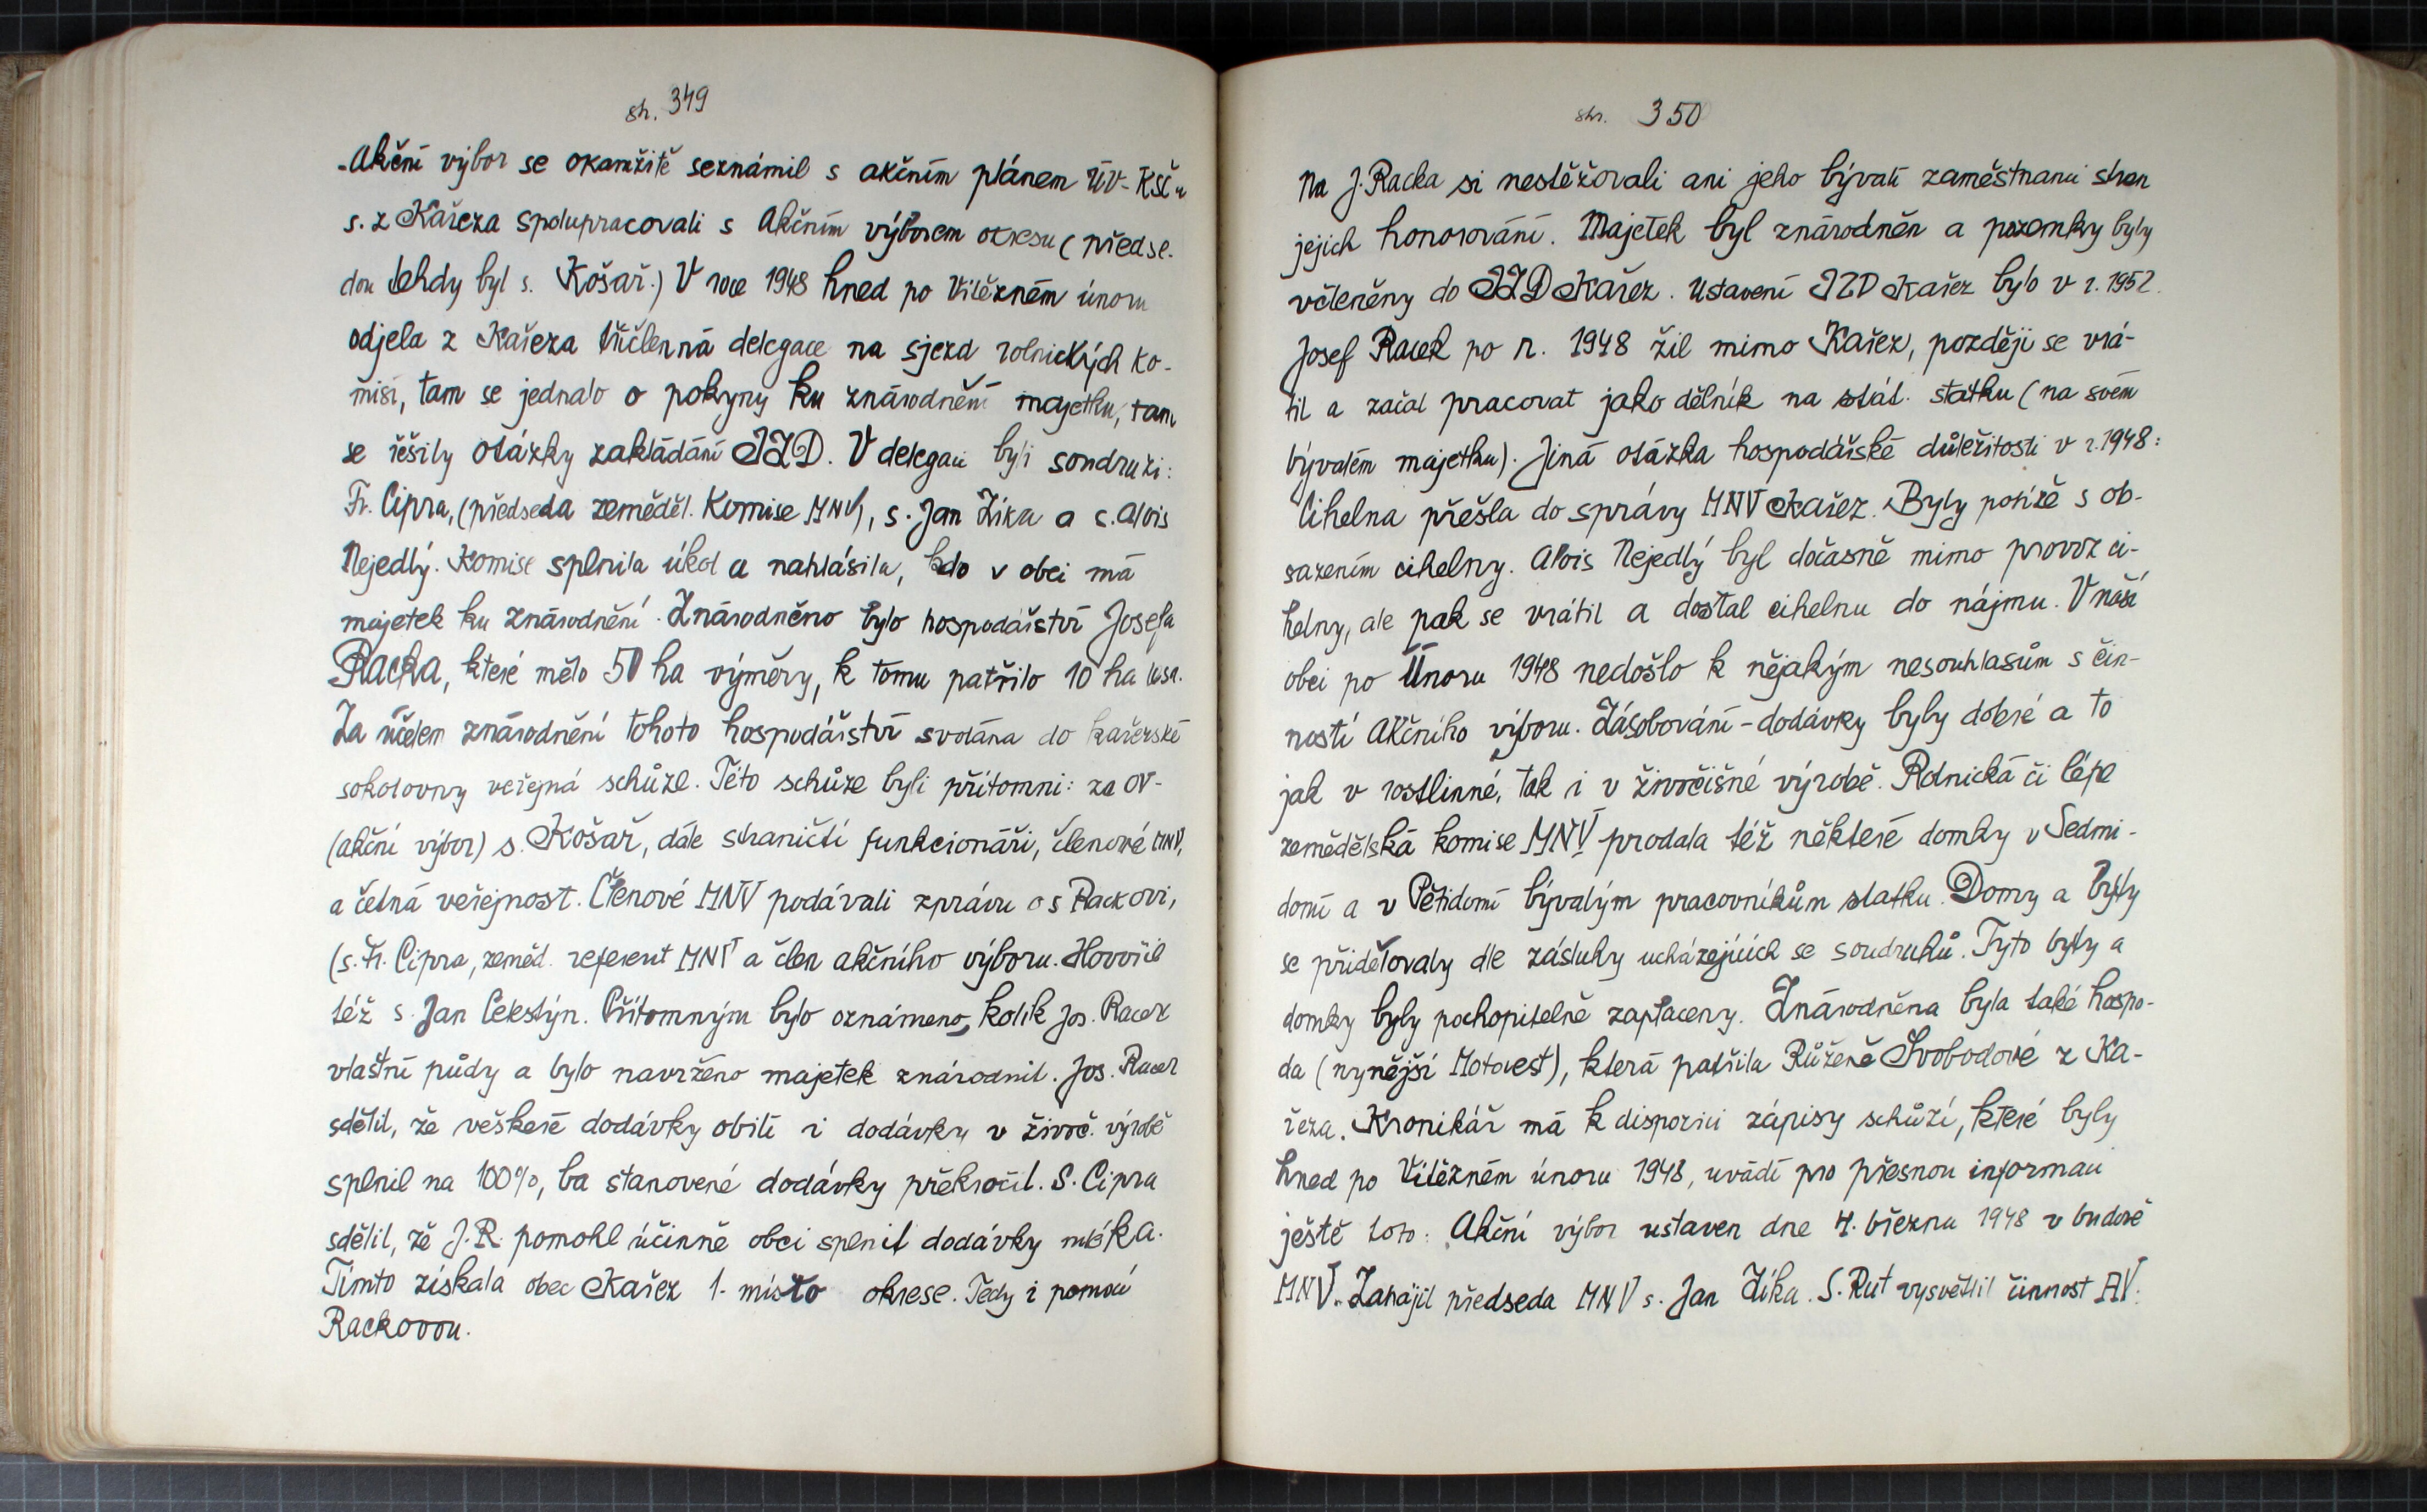 str. 349
Akční výbor se okamžitě seznámil s akčním plánem ÚV-KSČ a
s. z Kařeza spolupracovali s Akčním výborem okresu (předse-
dou tehdy byl s. Košař.) V roce 1948 hned po Vítězném únoru
odjela z Kařeza tříčlenná delegace na sjezd rolnických ko-
misí, tam se jednalo o pokyny ku znárodnění majetku, tam
se řešily otázky zakládání JZD. V delegaci byli soudruzi:
Fr. Cipra, (předseda zeměděl. Komise MNV), s. Jan Zíka a s. Alois
Nejedlý. Komise splnila úkol a nahlásila, kdo v obci má
majetek ku znárodnění. Znárodněno bylo hospodářství Josefa
Racka, které mělo 50 ha výměry, k tomu patřilo 10 ha lesa.
Za účelem znárodnění tohoto hospodářství svolána do kařezské
sokolovny veřejná schůze. Této schůze byli přítomni: za OV-
(akční výbor) s. Košař, dále straničtí funkcionáři, členové MNV,
a četná veřejnost. Členové MNV podávali zprávu o s Rackovi,
(s. Fr. Cipra, zeměd. referent MNV a člen akčního výboru. Hovořil
též s. Jan Celestýn. Přítomným bylo oznámeno, kolik Jos. Racek
vlastní půdy a bylo navrženo majetek znárodnit. Jos. Racek
sdělil, že veškeré dodávky obilí i dodávky v živoč. výrobě
splnil na 100%, ba stanovené dodávky překročil. S. Cipra
sdělil, že J.R. pomohl účinně obci splnit dodávky mléka.
Tímto získala obec Kařez 1. místo okrese. Tedy i pomocí
Rackovou.
str. 350
Na J. Racka si nestěžovali ani jeho bývalí zaměstnanci stran
jejich honorování. Majetek byl znárodněn a pozemky byly
včleněny do JZD Kařez. Ustavení JZD Kařez bylo v r. 1952.
Josef Racek po r. 1948 žil mimo Kařez, později se vrá-
til a začal pracovat jako dělník na stát. statku (na svém
bývalém majetku). Jiná otázka hospodářské důležitosti v r. 1948:
Cihelna přešla do správy MNV Kařez. Byly potíže s ob-
sazením cihelny. Alois Nejedlý byl dočasně mimo provoz ci-
helny, ale pak se vrátil a dostal cihelnu do nájmu. V naší
obci po Únoru 1948 nedošlo k nějakým nesouhlasům s čin-
ností Akčního výboru. Zásobování - dodávky byly dobré a to
jak v rostlinné, tak i v živočišné výrobě. Rolnická či lépe
zemědělská komise MNV prodala též některé domky v Sedmi-
domí a v Pětidomí bývalým pracovníkům statku. Domy a byty
se přidělovaly dle zásluhy ucházejících se soudruhů. Tyto byty a
domky byly pochopitelně zaplaceny. Znárodněna byla také hospo-
da (nynější Motorest), která patřila Růženě Svobodové z Ka-
řeza. Kronikář má k dispozici zápisy schůzí, které byly
hned po Vítězném únoru 1948, uvádí pro přesnou informaci
ještě toto: Akční výbor ustaven dne 4. března 1948 v budově
MNV. Zahájil předseda MNV s. Jan Zíka. S. Rut vysvětlil činnost AV: